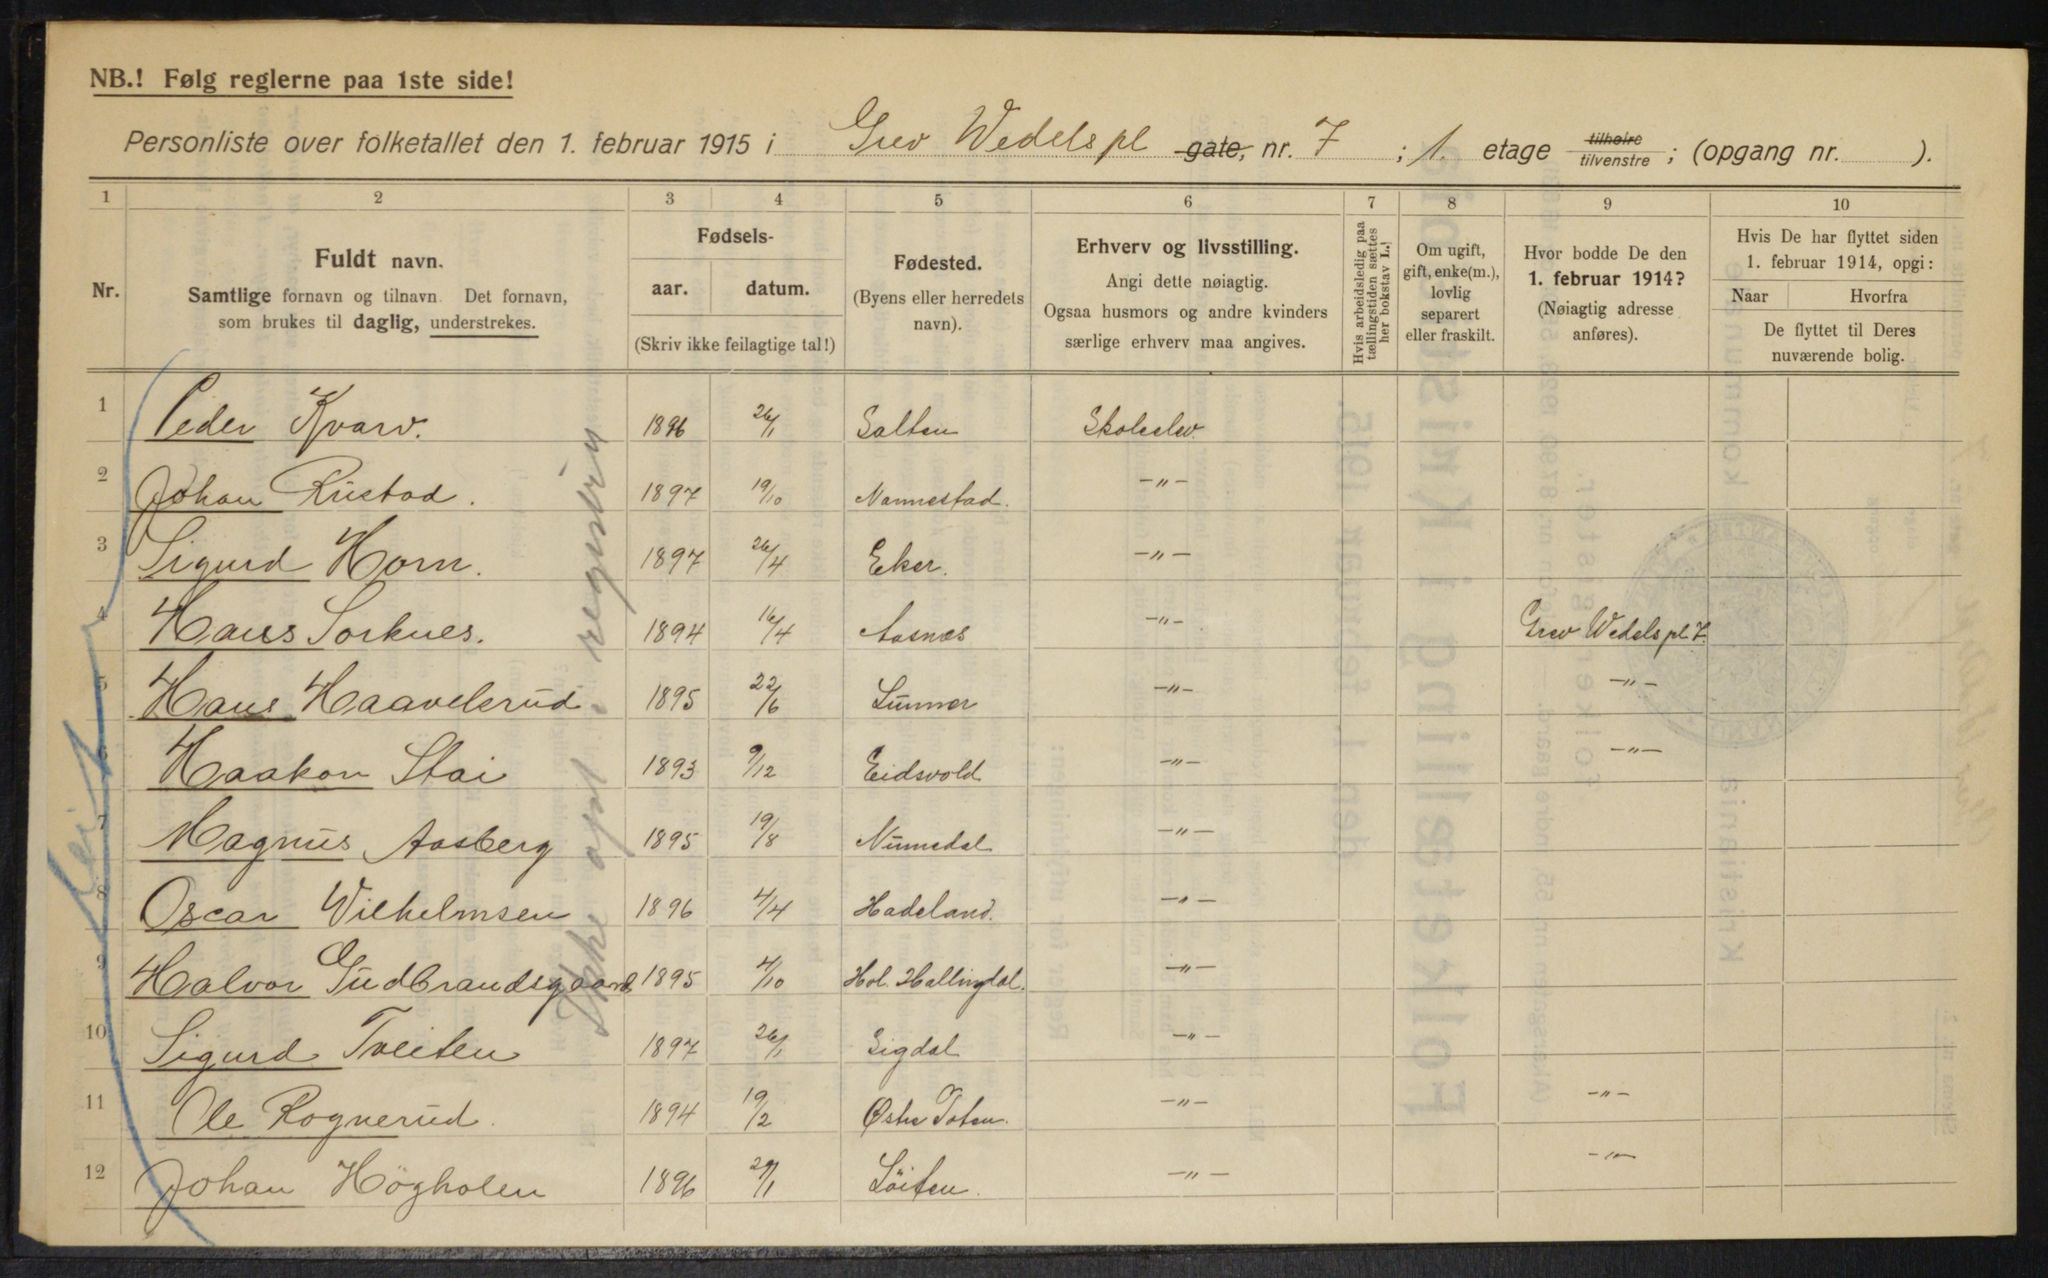 NB.! Følg reglerne paa 1ste side!
Personliste over folketallet den 1. februar 1915 i Grev Wedels pl gate, nr. 7 ; 1. etage tilhøire tilvenstre ; (opgang nr. ).
1 2 3 4 5 6 7 8 9 10
Nr.
Fuldt navn.
Samtlige fornavn og tilnavn. Det fornavn,
som brukes til daglig, understrekes.
Fødsels-
aar. datum.
(Skriv ikke feilagtige tal!)
Fødested.
(Byens eller herredets
navn).
Erhverv og livsstilling.
Angi dette nøiagtig.
Ogsaa husmors og andre kvinders
særlige erhverv maa angives.
Hvis arbeidsledig paa
tællingstiden sættes
her bokstav L.!
Om ugift,
gift, enke(m.),
lovlig
separert
eller fraskilt.
Hvor bodde De den
1. februar 1914?
(Nøiagtig adresse
anføres).
Hvis De har flyttet siden
1. februar 1914, opgi:
Naar Hvorfra
De flyttet til Deres
nuværende bolig.
1 Peder Kvarv. 1896 26/1 Salten Skoleelev
2 Johan Rustad. 1897 19/10 Nannestad. -"-
3 Sigurd Horn. 1897 26/4 Eker. -"-
4 Hans Sorknes. 1894 16/4 Aasnes -"- Grev Wedels pl. 7.
5 Hans Haavelsrud 1895 22/6 Lunner -"- -"-
6 Haakon Stai 1893 9/12 Eidsvold -"- -"-
7 Magnus Aasberg 1895 19/8 Numedal -"-
8 Oscar Wilhelmsen 1896 4/4 Hadeland. -"-
9 Halvor Gudbrandsgaard 1895 4/10 Hol. Hallingdal. -"-
10 Sigurd Tveiten 1897 26/1 Sigdal -"-
11 Ole Rognerud. 1894 19/2 Østre Toten. -"- -"-
12 Johan Högholen 1896 29/1 Löiten. -"- -"-
Ikke opt i registrin